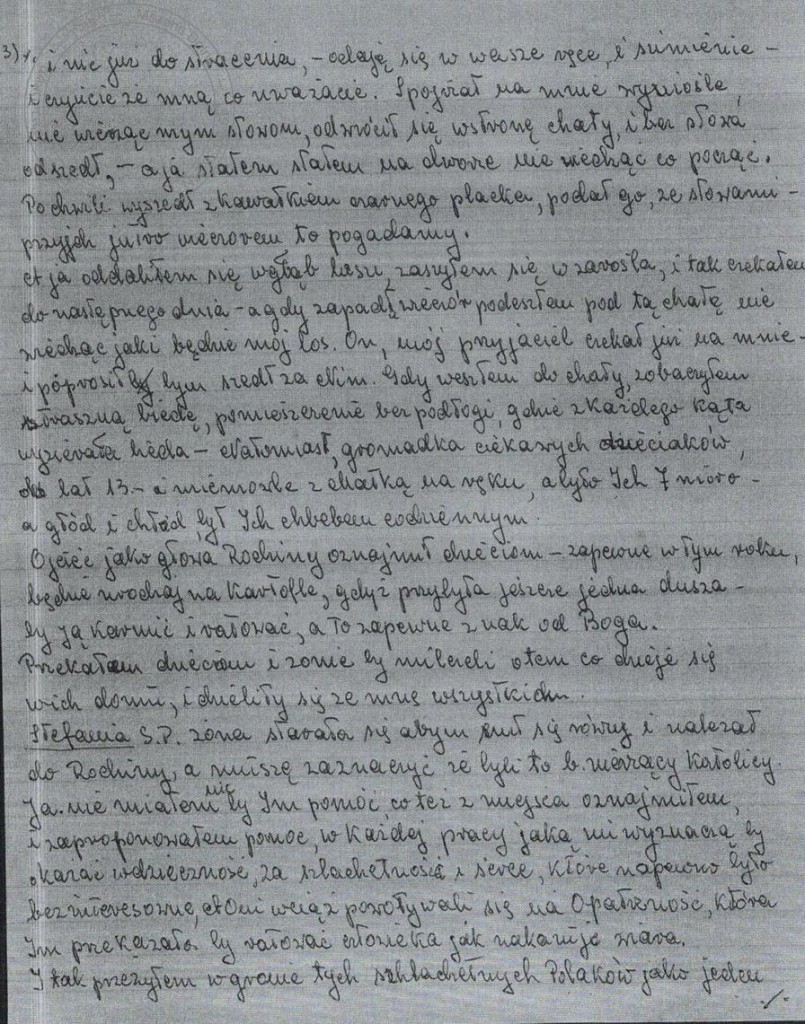 3) i nic już do stracenia, - oddaję się w wasze ręce, i sumienie -
i czyńcie ze mną co uważacie. Spojrzał na mnie wyniośle,
nie wierząc mym słowom, odwrócił się wstronę chaty, i bez słowa
odszedł, - a ja stałem stałem na dworze nie wiedząc co począć.
Po chwili wyszedł z kawałkiem czarnego placka, podał go, ze słowami -
przyjdz jutro wieczorem to pogadamy.
A ja oddaliłem się wgłąb lasu, zaszyłem się w zarośla, i tak czekałem
do następnego dnia - a gdy zapadł wieczór podeszłem pod tą chatę nie
wiedząc jaki będzie mój los. On, mój przyjaciel czekał już na mnie -
i poprosił bym szedł za Nim. Gdy weszłem do chaty, zobaczyłem
straszną biedę, pomieszczenie bez podłogi, gdzie z każdego kąta
wyzierała bieda - Natomiast, gromadka ciekawych dzieciaków,
do lat 13.- i niemowle z matką na ręku, a było Ich 7 nioro -
a głód i chłód był Ich chlebem codziennym.
Ojciec jako głowa Rodziny oznajmił dzieciom - zapewne w tym roku,
będzie urodzaj na Kartofle, gdyż przybyła jeszcze jedna dusza -
by ją karmić i ratować, a to zapewne znak od Boga.
Przekałam dzieciom i żonie by milczeli otem co dzieje się
wich domu, i dzieliły się ze mną wszystkiem.
Stefania Ś.P. żona starała się abym czuł się równy i należał
do Rodziny, a muszę zaznaczyć że byli to b. wierzący Katolicy.
Ja nie miałem nic by Im pomóc, co też z miejsca oznajmiłem,
i zaproponowałem pomoc, w Każdej pracy jaką mi wyznaczą by
okazać wdzięczność, za szlachetność i serce, które napewno było
bezinteresowne, A Oni wciąż powoływali się na Opatrzność, która
Im przekazała by ratować człowieka jak nakazuje wiara.
I tak przeżyłem w gronie tych szlachetnych Polaków jako jeden
./.